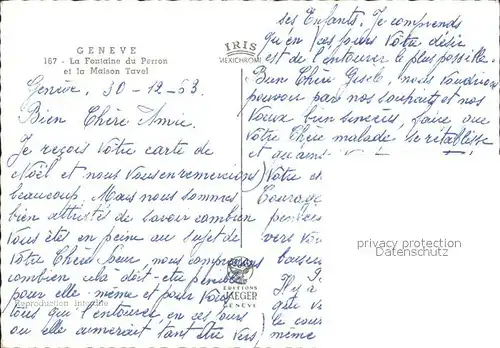 GENEVE
187 - La Fontaine du Perron
et la Maison Tavel
Genève, 30-12-63.
Bien Chère Amie.
Je reçois votre carte de
Noël et nous vous en remercions
beaucoup. Mais nous sommes
bien attristés de savoir combien
vous êtes en peine au sujet de
votre Chère Sœur, nous comprenons
combien celà doit-être pénible
pour elle-même et pour vous
Reproduction interdite
tous qui l'entourez en ces jours
ou elle aimerait tant être vers
IRIS
MEXICHROME
EDITIONS
JAEGER
GENÈVE
ses Enfants. Je comprends
qu'en ces jours votre désir
est de l'entourer le plus possible.
Bien Chère Gisèle, nous voudrions
pouvoir par nos souhaits et nos
vœux bien sincères, faire que
votre Chère malade se rétablisse
et
votre
Courage
pensées
vers vou
Il y a
que v
le cou
même
privacy protection
Datenschutz